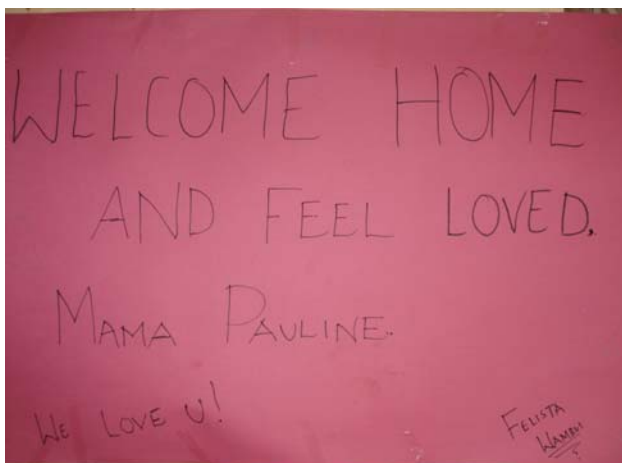 WELCOME HOME
AND FEEL LOVED.
MAMA PAULINE.
WE LOVE U!
FELISTA